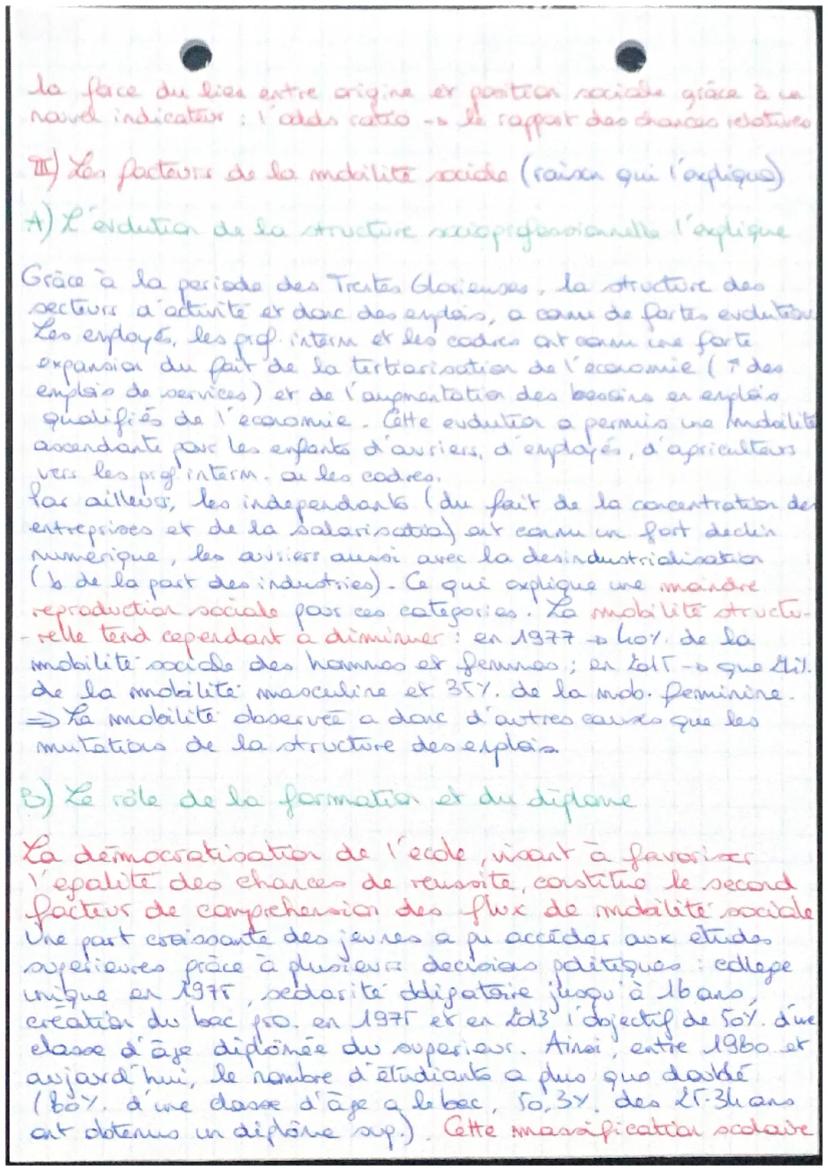 la force du lien entre origine et position sociale grâce à un
nouvel indicateur : l'odds ratio → le rapport des chances relatives
III) Les facteurs de la mobilité sociale (raison qui l'explique)
A) L'évolution de la structure socioprofessionnelle l'explique
Grâce à la periode des Trentes Glorieuses, la structure des
secteurs d'activité et donc des emplois, a connu de fortes evolution
Les employés, les prof. interm et les cadres ont connu une forte
expansion du fait de la tertiarisation de l'économie (↑ des
emplois de services) et de l'augmentation des besoins en emplois
qualifiés de l'économie. Cette evolution a permis une mobilité
ascendante pour les enfants d'ouvriers, d'employés, d'agriculteurs
vers les prof interm. ou les cadres.
Par ailleurs, les independants (du fait de la concentration des
entreprises et de la salarisation) ont connu un fort declin
numérique, les ouvriers aussi avec la desindustrialisation
(↘ de la part des industries). Ce qui explique une moindre
reproduction sociale pour ces catégories. La mobilité structu-
-relle tend cependant à diminuer : en 1977 → 40% de la
mobilité sociale des hommes et femmes ; en 2015 → que
de la mobilité masculine et 35% de la mob. feminine.
⇒ La mobilité observée a donc d'autres causes que les
mutations de la structure des emplois
B) Le rôle de la formation et du diplome
La démocratisation de l'école, visant à favoriser
l'egalité des chances de reussite, constitue le second
facteur de comprehension des flux de mobilité sociale
Une part croissante des jeunes a pu accéder aux etudes
superieures grâce à plusieurs decisions politiques : college
unique en 1975, scolarité obligatoire jusqu'à 16 ans,
création du bac pro. en 1975 et en 2013 l'objectif de 50% d'une
classe d'âge diplômée du superieur. Ainsi, entre 1980 et
aujourd'hui, le nombre d'étudiants a plus que doublé
(80% d'une classe d'âge a le bac, 50,3% des 25-34 ans
ont obtenus un diplôme sup.). Cette massification scolaire